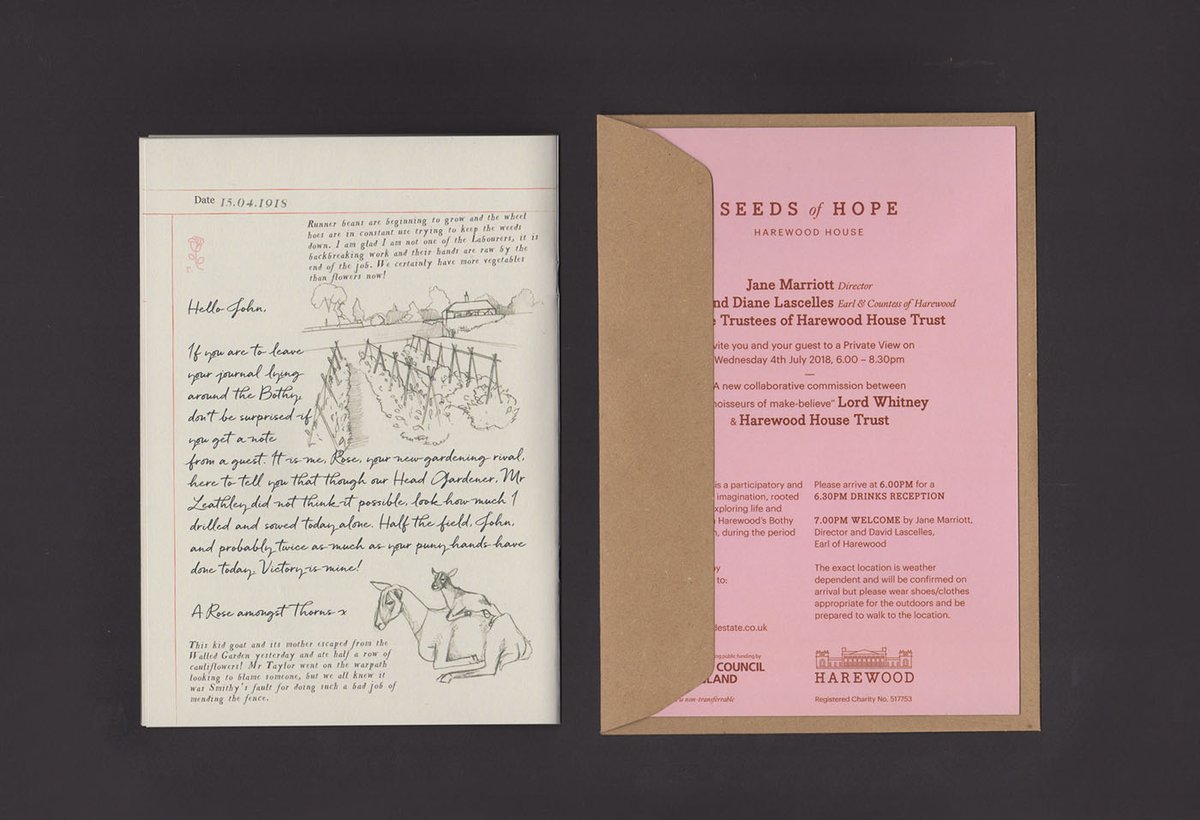 Date 15.04.1918
Runner beans are beginning to grow and the wheel
hoes are in constant use trying to keep the weeds
down. I am glad I am not one of the Labourers, it is
backbreaking work and their hands are raw by the
end of the job. We certainly have more vegetables
than flowers now!
Hello John,
If you are to leave
your journal lying
around the Bothy,
don't be surprised if
you get a note
from a guest. It is me, Rose, your new gardening rival,
here to tell you that though our Head Gardener, Mr
Leathley did not think it possible, look how much I
drilled and sowed today alone. Half the field, John,
and probably twice as much as your puny hands have
done today. Victory is mine!
A Rose amongst Thorns x
This kid goat and its mother escaped from the
Walled Garden yesterday and ate half a row of
cauliflowers! Mr Taylor went on the warpath
looking to blame someone, but we all knew it
was Smithy's fault for doing such a bad job of
mending the fence.
SEEDS of HOPE
HAREWOOD HOUSE
Jane Marriott Director
nd Diane Lascelles Earl & Countess of Harewood
e Trustees of Harewood House Trust
vite you and your guest to a Private View on
Wednesday 4th July 2018, 6.00 – 8.30pm
—
A new collaborative commission between
noisseurs of make-believe" Lord Whitney
& Harewood House Trust
is a participatory and
imagination, rooted
xploring life and
Harewood's Bothy
, during the period
by
to:
destate.co.uk
ng public funding by
COUNCIL
LAND
non-transferrable
Please arrive at 6.00PM for a
6.30PM DRINKS RECEPTION
7.00PM WELCOME by Jane Marriott,
Director and David Lascelles,
Earl of Harewood
The exact location is weather
dependent and will be confirmed on
arrival but please wear shoes/clothes
appropriate for the outdoors and be
prepared to walk to the location.
HAREWOOD
Registered Charity No. 517753